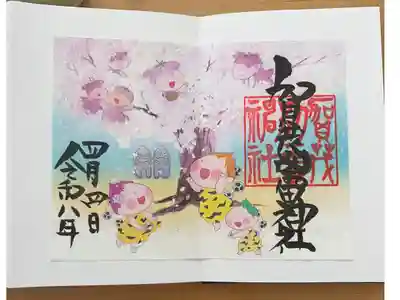 賀茂別雷神社
賀茂
神社
四月四日
令和八年